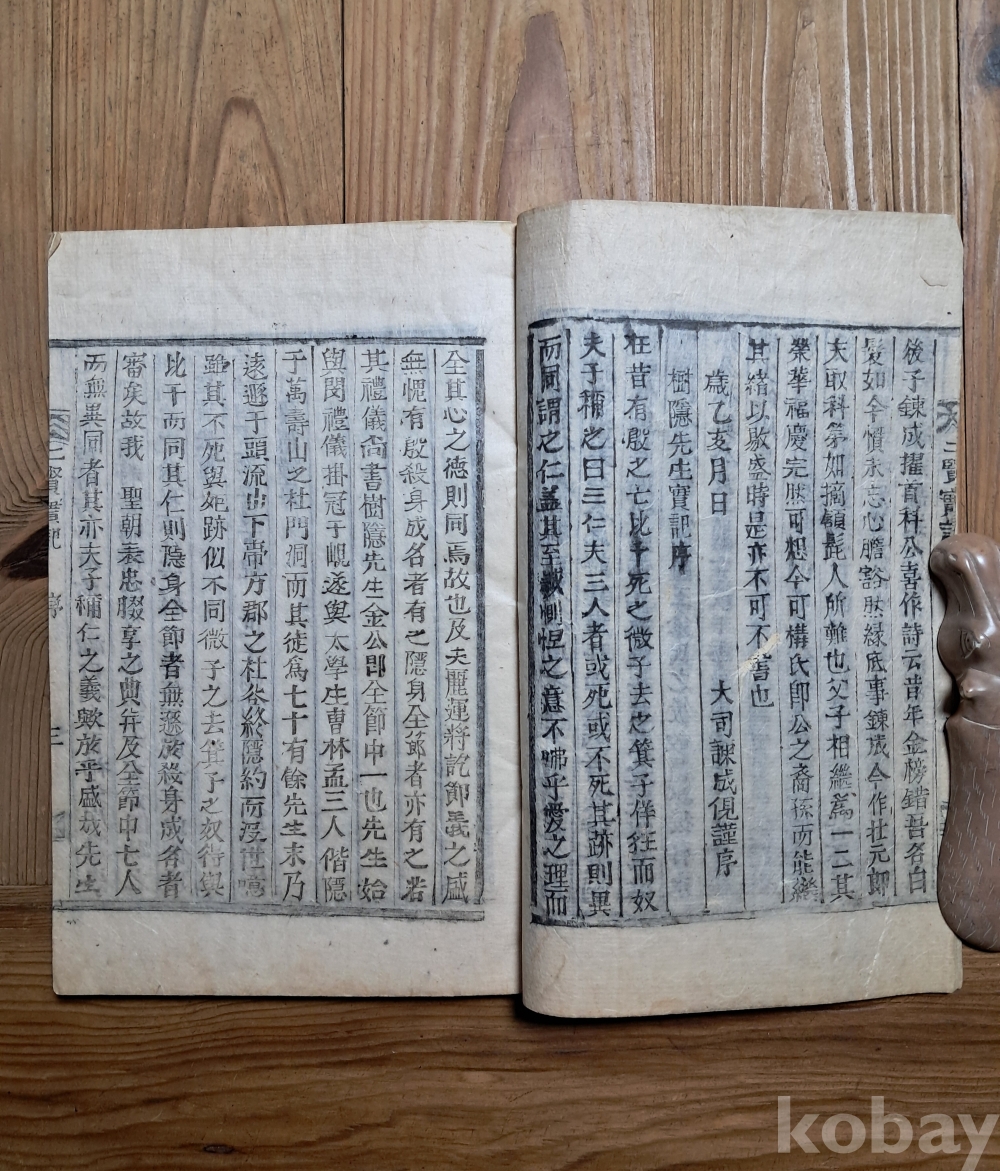 後子鍊成擢百科公喜作詩云昔年金榜錯吾名白
髮如今慣永忘心膽豁然緣底事鍊成今作壯元郞
夫取科第如摘頷髭人所難也父子相繼爲一二其
榮華福慶完然可想今可構氏卽公之裔孫而能繼
其緖以敭盛時是亦不可不書也
歲乙亥月日 大司諫成俔謹序
樹隱先生實記序
在昔有殷之亡比干死之微子去之箕子佯狂而奴
夫子稱之曰三仁夫三人者或死或不死其跡則異
而同謂之仁盖其至誠惻怛之意不咈乎愛之理而
全其心之德則同焉故也及夫麗運將訖節義之盛
無愧有殷殺身成名者有之隱身全節者亦有之若
其禮儀尙書樹隱先生金公卽全節中一也先生始
與閔禮儀掛冠于峴遂與太學生曺林孟三人偕隱
于萬壽山之杜門洞而其徒爲七十有餘先生末乃
遠遯于頭流山下帶方郡之杜谷終隱約而沒世噫
雖其不死與妃跡似不同微子之去箕子之奴待與
比干而同其仁則隱身全節者無遜於殺身成名者
審矣故我 聖朝表忠腏享之典幷及全節中七人
而無異同者其亦夫子稱仁之義歟於乎盛哉先生
二賢實記 序 三
二賢實記
kobay